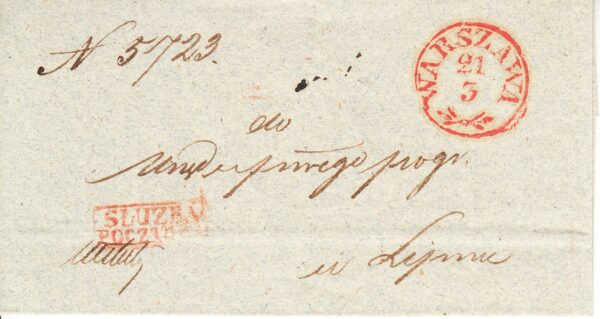 N 5723.
WARSZAWA
21
3
do
pogr.
SŁUZBA
POCZTOWA
w Lipnie